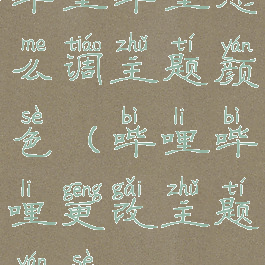 me tiáo zhǔ tí yán
么调主题颜
sè bì li bì
色（哔哩哔
li gēng gǎi zhǔ tí
哩更改主题
yán sè